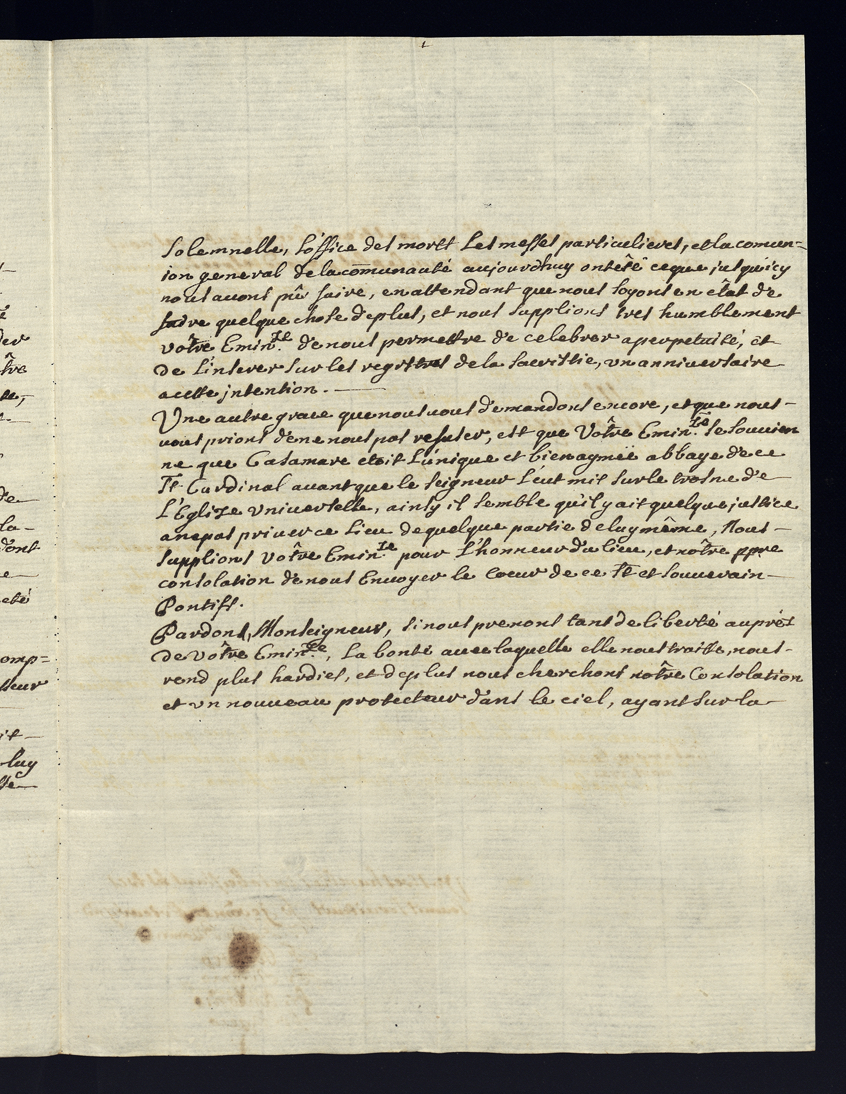 Solemnelle, L'office des morts Les messes particulieres, et la comun=
ion general de la cōmunauté aujourd'huy ont êtê ce que jusqu'icy
nous auons pû faire, en attendant que nous soyons en êtat de
faire quelque chose de plus, et nous supplions tres humblement
vôtre Emin.ce de nous permettre de celebrer a perpetuité, et
de L'inserer sur les regitres de la Sacristie, vn anniversaire
a cette jntention. —
Une autre grace que nous vous demandons encore, et que nous —
vous prions de ne nous pas refuser, est que Vôtre Emin.ce se souvien
ne que Casamare étoit L'únique et bien aymée abbaye de ce
St. Cardinal auant que le Seigneur L'eut mis sur le trosne de
L'Eglize Vniverselle, ainsy il semble qu'il y ait quelque justice
a ne pas priuer ce Lieu de quelque partie de luy même, Nous —
Supplions vôtre Emin.ce pour L'honneur du lieu, et nôtre ppre
consolation de nous Envoyer le Coeur de ce St. et souverain —
Pontife.
Pardons, Monseigneur, si nous prenons tant de liberté auprés
de vôtre Emin.ce, La bonté avec laquelle elle nous traitte, nous —
rend plus hardies, et de plus nous cherchons nôtre Consolation
et vn nouveau protecteur dans le ciel, ayant sur la —